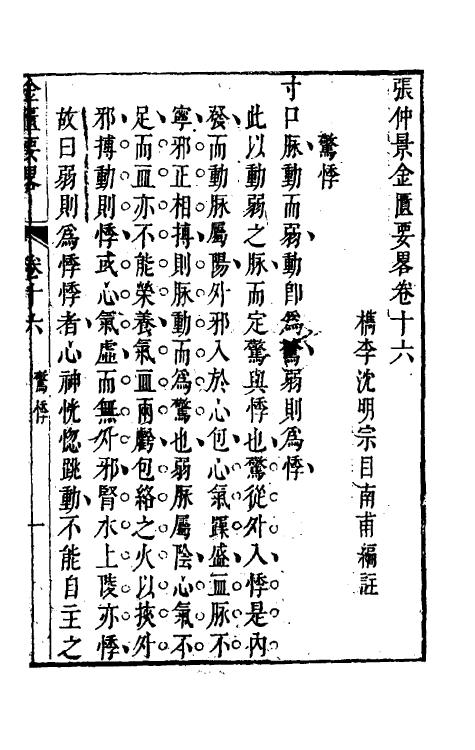 張仲景金匱要畧卷十六
檇李沈明宗目南甫編註
驚悸
寸口脉動而弱動卽爲驚弱則爲悸
此以動弱之脉而定驚與悸也驚從外入悸是內
發而動脉屬陽外邪入於心包心氣躁盛血脉不
寧邪正相搏則脉動而爲驚也弱脉屬陰心氣不
足而血亦不能榮養氣血兩虧包絡之火以挾外
邪搏動則悸或心氣虛而無外邪腎水上陵亦悸
故曰弱則爲悸悸者心神恍惚跳動不能自主之
金匱要畧 卷十六 驚悸 一